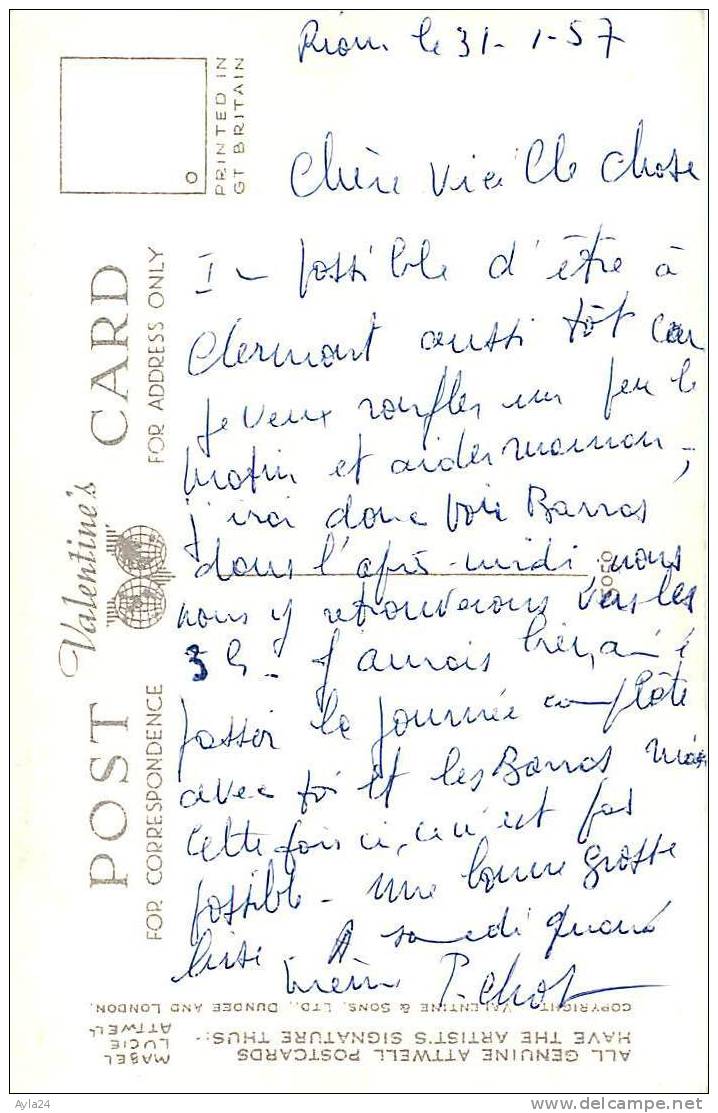 Riom le 31-1-57
Chère Vieille chose
Impossible d'être à
Clermont aussi tôt car
je veux ronfler un peu le
matin et aider maman,
j'irai donc voir Barras
dans l'après-midi, nous
nous y retrouverons vers les
3h - J'aurais bien aimé
passer la journée complète
avec toi et les Barras mais
cette fois ci, ce n'est pas
possible - une bonne grosse
bise. A samedi quand
même
PRINTED IN
GT BRITAIN
POST CARD
Valentine's
FOR CORRESPONDENCE
FOR ADDRESS ONLY
ALL GENUINE ATTWELL POSTCARDS
HAVE THE ARTIST'S SIGNATURE THUS:-
MABEL
LUCIE
ATTWELL
COPYRIGHT, VALENTINE & SONS, LTD., DUNDEE AND LONDON.
Ayla24
http://www.delcampe.net